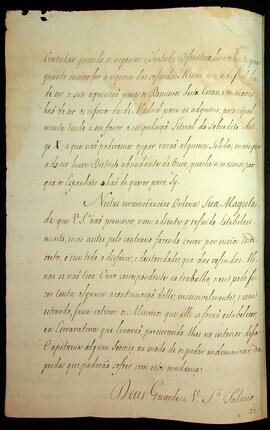 Contestar quando se organar o Tratado definitivo
quanto maior for a riqueza das referidas Minas,
de ser a sua aquisição para os Dominios desta Coroa,
hão de ser os esforços da de Madrid para as adquirir, principal
mente tendo a seu favor a estipulação literal do sobredito Arti
go X a que não poderemos oppor razão alguma solida, mais que
a de ser hum Districto abundante de Ouro, que he a mesma por
que os Espanhoes o hão de querer para sy.
Nestas circumstancias Ordena Sua Magesta
de que V. S.ª não promova, nem adiente o referido estabeleci
mento, mas antes pelo contrario fazendo cessar por meios indi
rectos, e com todo o disfarce, e dexteridade, que das referidas Mi
nas se não tire Ouro correspondente ao trabalho, nem podé-f
zer conta alguma a continuação delle; insensivelmente, e sem
estrondo, faça retirar os Mineiros que alli se forão estabelecer,
ea Escravatura que levarão; procurando-lhes no interior dessa
Capitania algum Serviço, de modo de os poder indemnizar da
perda que poderão sofrer com esta mudança.
Deus Guarde a V. S.ª Palacio